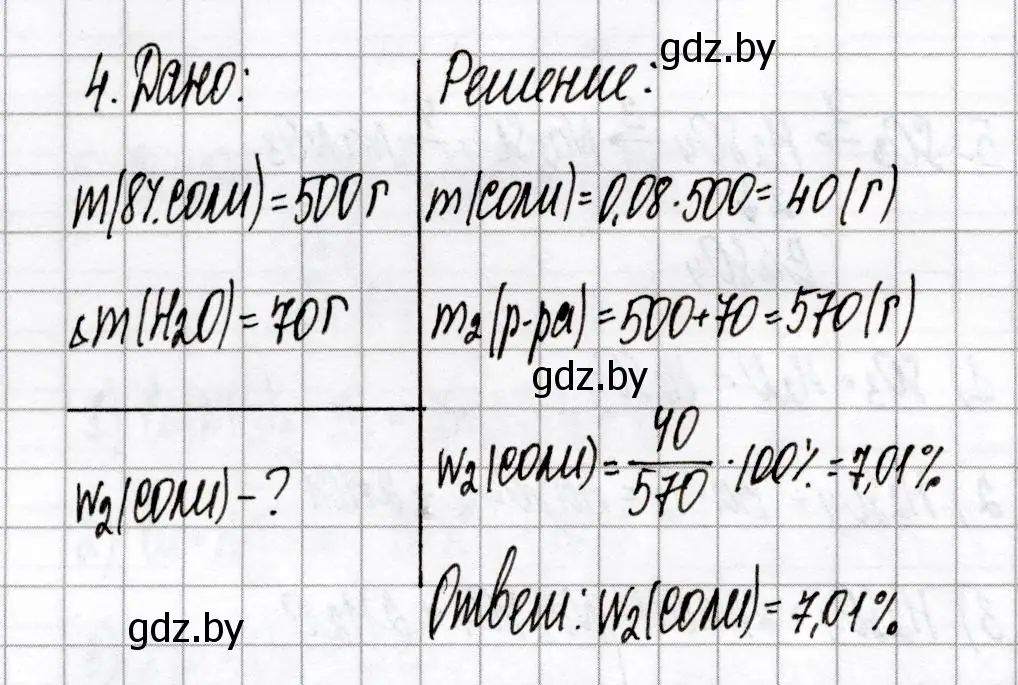 gdz.by
4. Дано:
m(8%.соли)=500г
△m(H₂O)=70г
w₂(соли)-?
Решение:
m(соли)=0,08·500=40(г)
m₂(р-ра)=500+70=570(г)
gdz.by
w₂(соли)=40/570·100%=7,01%
Ответ: w₂(соли)=7,01%
gdz.by